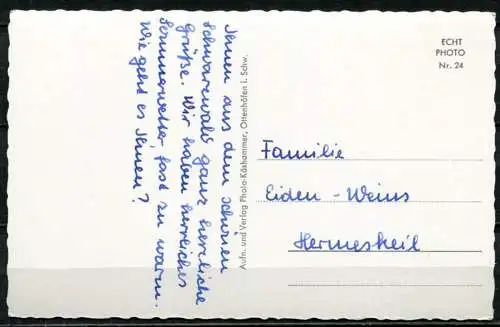 Ihnen aus dem schönen
Schwarzwald ganz herzliche
Grüße. Wir haben herrliches
Sommerwetter, fast zu warm.
Wie geht es Ihnen?
Aufn. und Verlag Photo-Käshammer, Ottenhöfen i. Schw.
ECHT
PHOTO
Nr. 24
Familie
Eiden-Weins
Hermeskeil